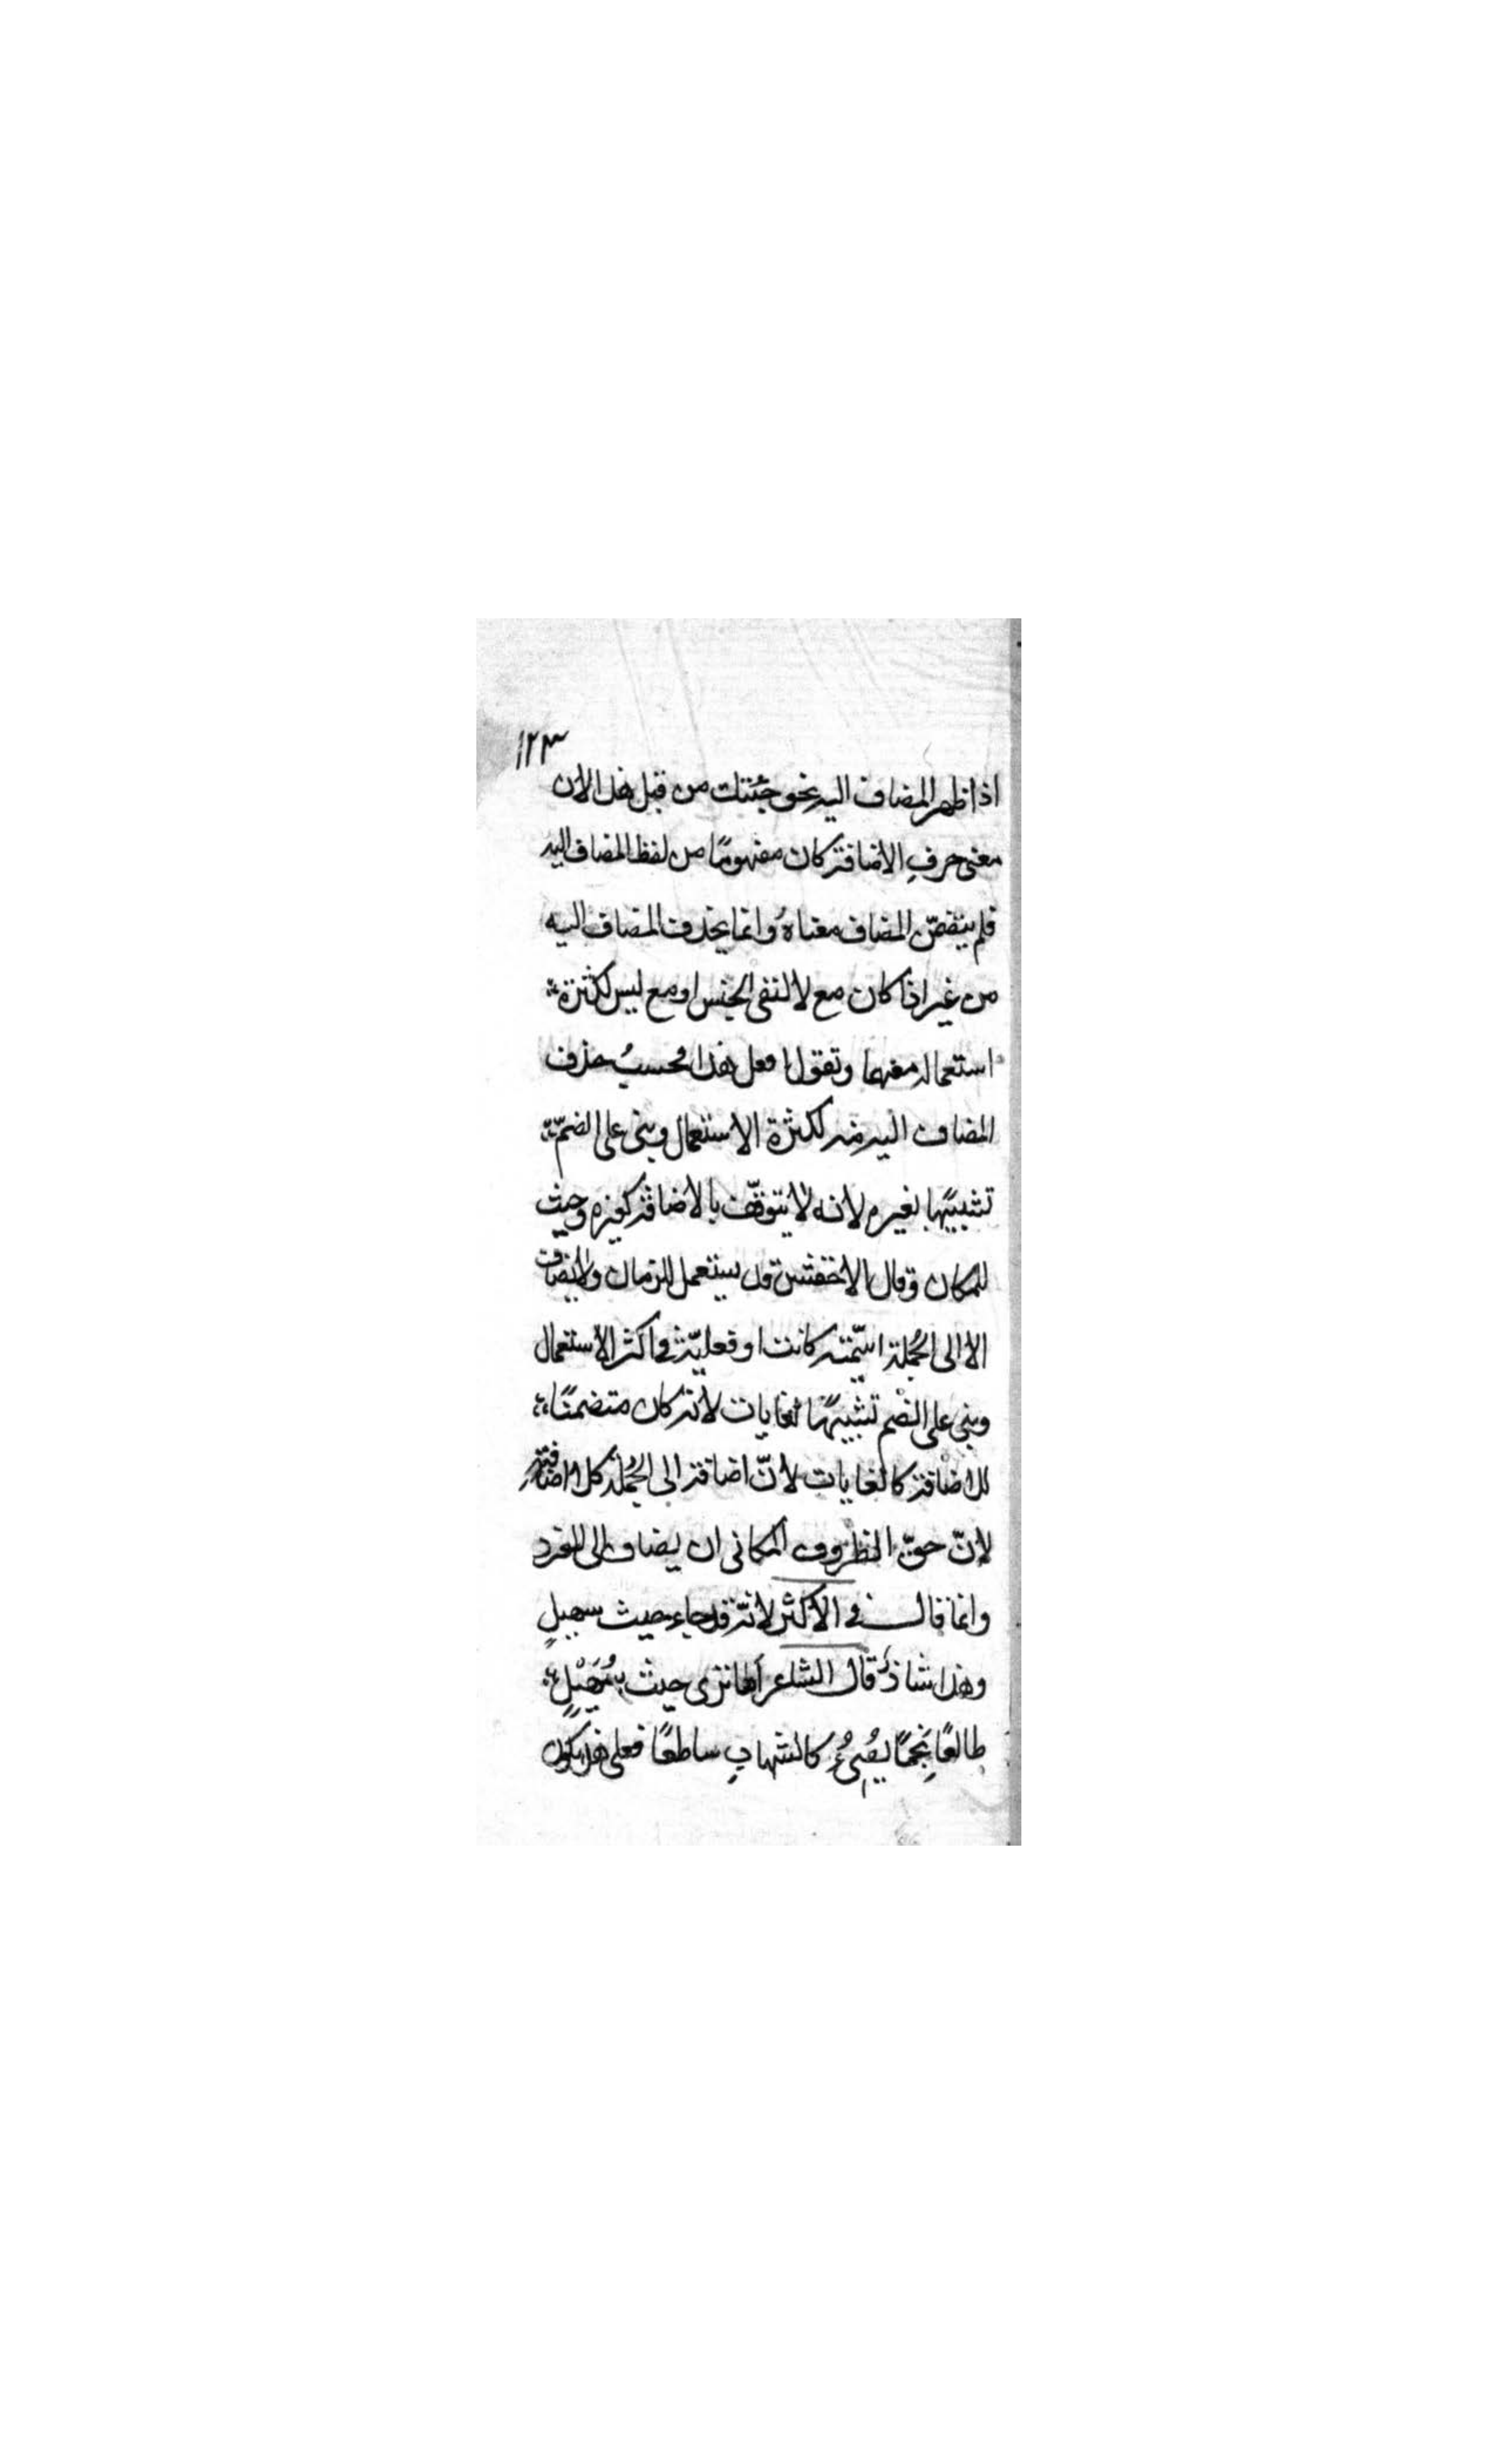 ١٢٣
اذا ظهر المضاف اليه نحو جئتك من قبل هذا لان
معنى حرفِ الاضافة كان مفهومًا من لفظ المضاف اليه
فلم ينقصّ المضاف معناهُ وانما يحذف المضاف اليه
من غير اذا كان مع لا لنفى الجنس او مع ليس لكثرة
استعماله معهما وتقول افعل هذا فحسبُ حذف
المضاف اليه منه لكثرة الاستعمال وبنى على الضمّ
تشبيهًا بغير لانه لا يتوقّف بالاضافة كغيره وحيث
للمكان وقال الاخفش قد يستعمل للزمان ولا يضاف
الا الى الجُملة اسميّة كانت او فعليّة فى اكثر الاستعمال
وبنى على الضم تشبيهًا لغايات لانه كان متضمنًا
للاضافة كالغايات لانّ اضافة الى الجُملة كلا اضافةِ
لانّ حقّ الظروف المكانى ان يضاف الى المفرد
وانما قال فى الاكثر لانّه قد جاء حيث سهيلٍ
وهذا شاذ قال الشاعر أما ترى حيث سُهَيْلٍ
طالعًا نجمًا يضُىءُ كالشهابِ ساطعًا فعلى هذا يكون